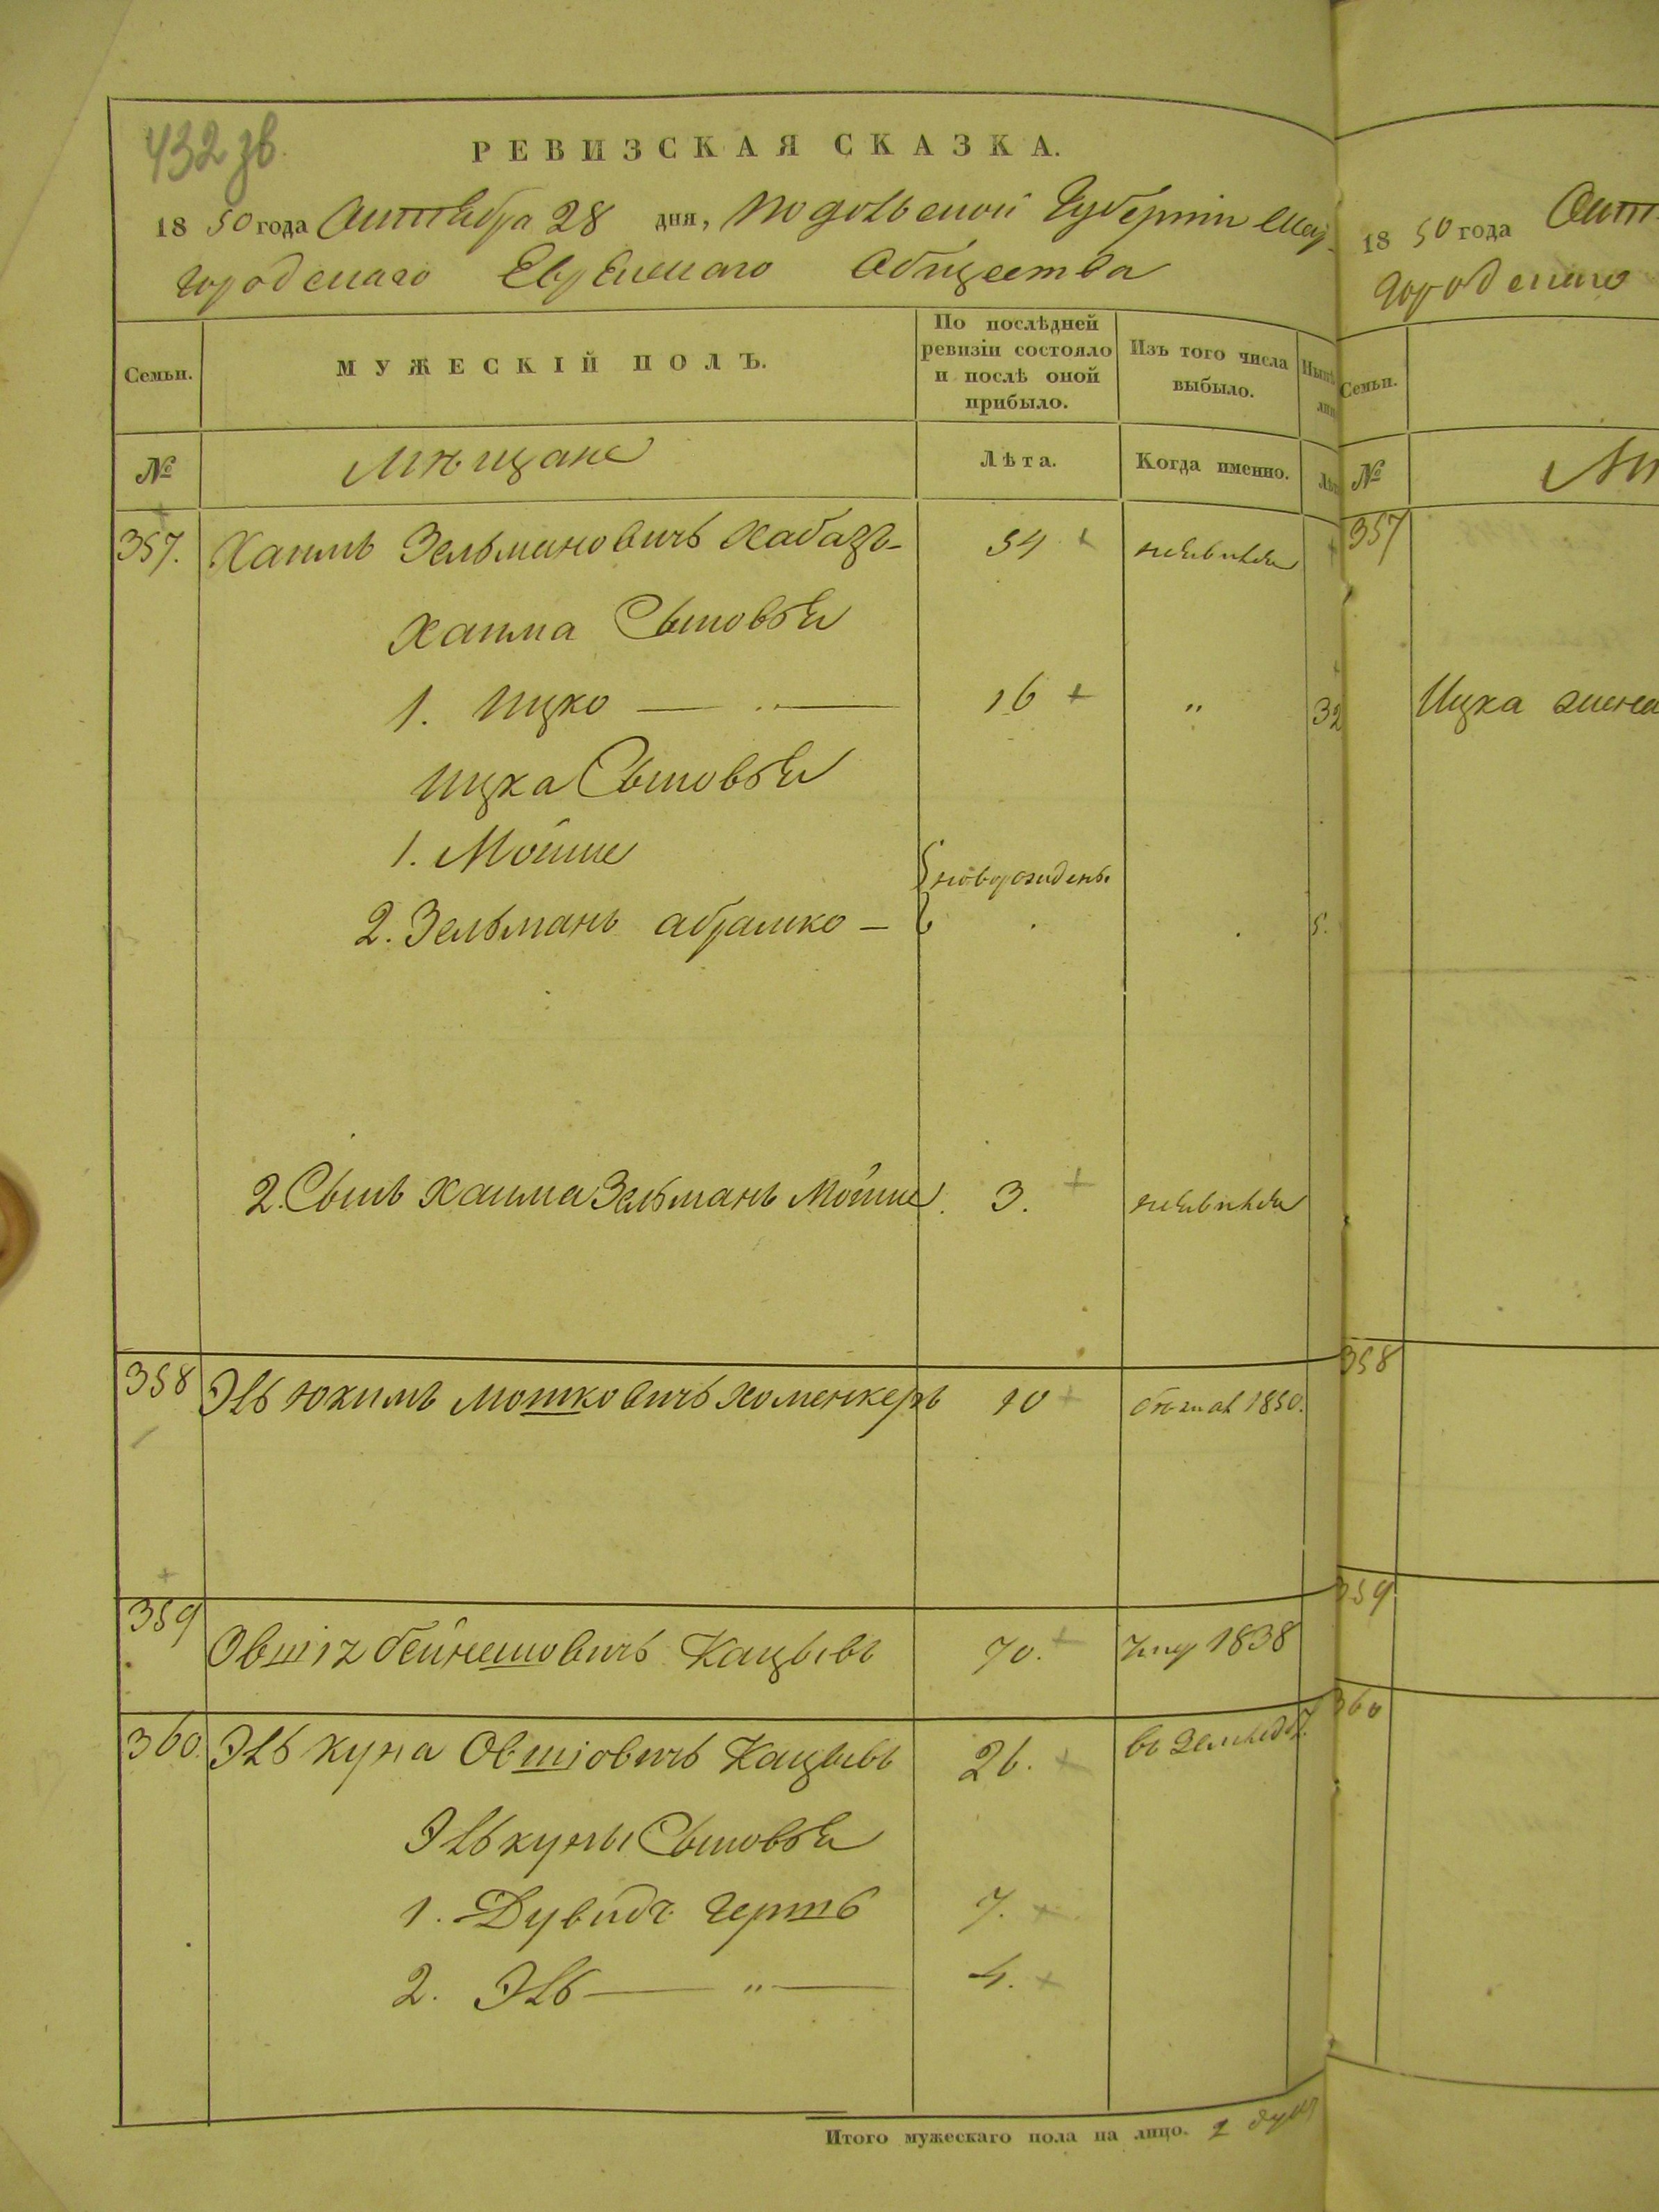 432 зв.
РЕВИЗСКАЯ СКАЗКА.
1850 года Октября 28 дня, Подольской Губернiи
городскаго Еврейскаго Общества
Семьи.
МУЖЕСКIЙ ПОЛЪ.
По послѣдней ревизiи состояло и послѣ оной прибыло.
Изъ того числа выбыло.
№
Мѣщане
Лѣта.
Когда именно.
357. Хаимъ Зельмановичъ Хабазъ 54
Хаима Сыновья
1. Ицко — " — 16 " 32
Ицка Сыновья
1. Мойше
новорожденъ
2. Зельманъ Абрамко — 5.
2. Сынъ Хаима Зельманъ Мойше. 3.
358 Эль Юхимъ Мошковичъ Хоменкеръ 10 1850.
359 Овшiя Бейнешовичъ Кацывъ 70. 1838
360. Элькуна Овшiовичъ Кацывъ 26.
Элькуны Сыновья
1. Дувидъ Гершъ 7.
2. Эль — " — 4.
Итого мужескаго пола на лицо. 2 душ
1850 года
городскаго
Семьи.
№
357
Ицка жена
358
359
360